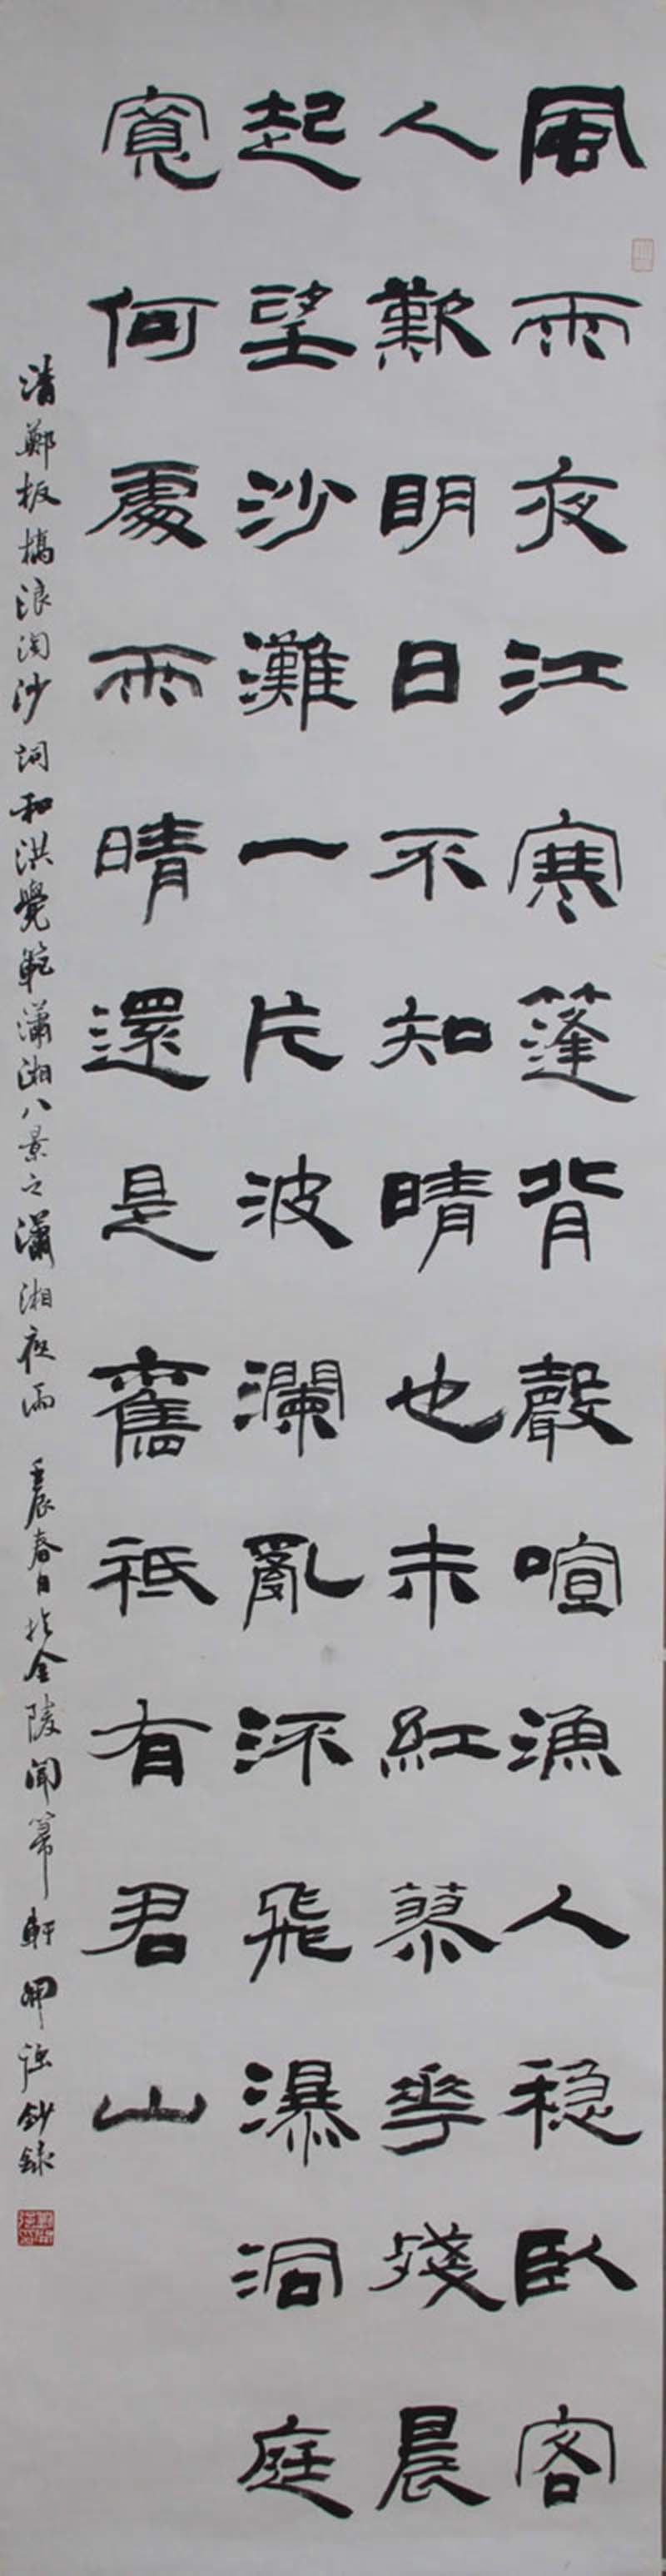 風雨夜江寒篷背聲喧漁人穩臥客
人歎明日不知晴也未紅蓼花殘晨
起望沙灘一片波瀾亂流飛瀑洞庭
寬何處雨晴還是舊祗有君山
清鄭板橋浪淘沙詞和洪覺範瀟湘八景之瀟湘夜雨 壬辰春日於金陵聞 軒 鈔錄